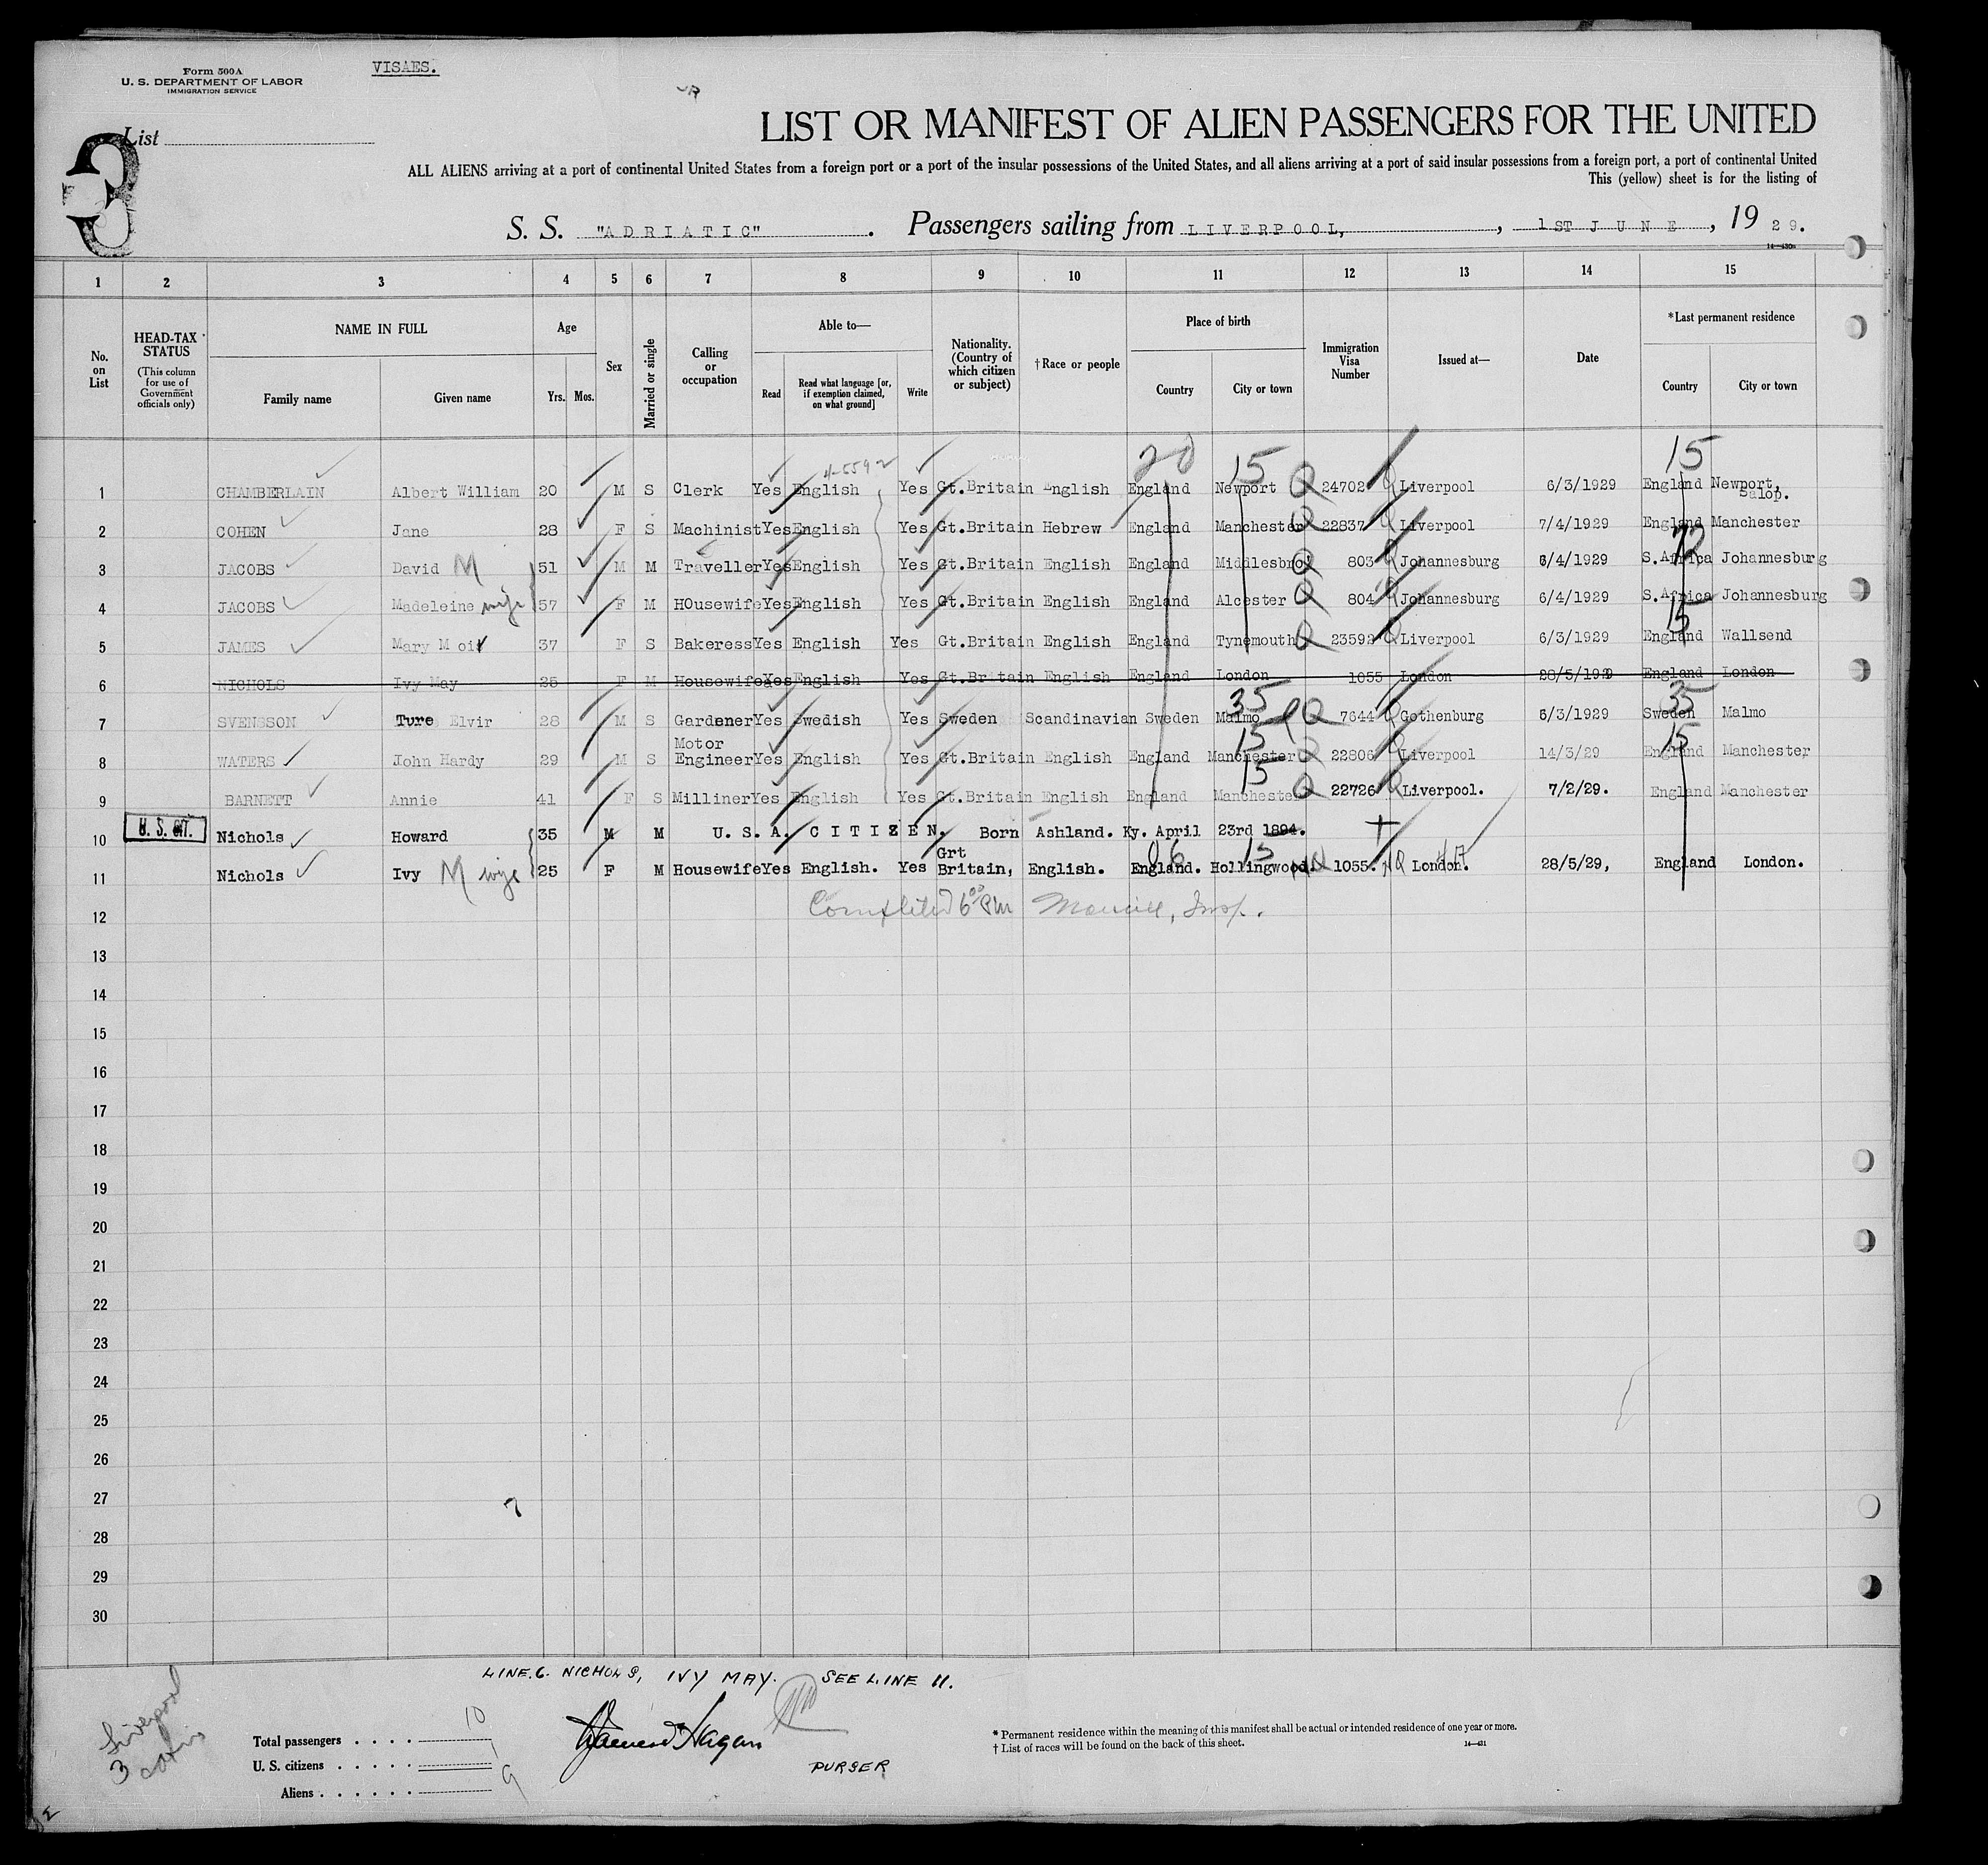 Form 500A
U. S. DEPARTMENT OF LABOR
IMMIGRATION SERVICE
VISAES.
List
3
LIST OR MANIFEST OF ALIEN PASSENGERS FOR THE UNITED
ALL ALIENS arriving at a port of continental United States from a foreign port or a port of the insular possessions of the United States, and all aliens arriving at a port of said insular possessions from a foreign port, a port of continental United
This (yellow) sheet is for the listing of
S. S. "ADRIATIC" . Passengers sailing from LIVERPOOL, , 1ST JUNE , 19 29.
1 2 3 4 5 6 7 8 9 10 11 12 13 14 15
No. on List
HEAD-TAX STATUS (This column for use of Government officials only)
NAME IN FULL Family name Given name
Age Yrs. Mos.
Sex
Married or single
Calling or occupation
Able to— Read Read what language [or, if exemption claimed, on what ground] Write
Nationality. (Country of which citizen or subject)
†Race or people
Place of birth Country City or town
Immigration Visa Number
Issued at—
Date
*Last permanent residence Country City or town
20 15 15
4-5592
1 CHAMBERLAIN Albert William 20 M S Clerk Yes English Yes Gt.Britain English England Newport Q 24702 Liverpool 6/3/1929 England Newport, Salop.
2 COHEN Jane 28 F S Machinist Yes English Yes Gt.Britain Hebrew England Manchester Q 22837 Liverpool 7/4/1929 England Manchester
72
3 JACOBS David M 51 M M Traveller Yes English Yes Gt.Britain English England Middlesbro Q 803 Johannesburg 6/4/1929 S.Africa Johannesburg
4 JACOBS Madeleine wife 57 F M HOusewife Yes English Yes Gt.Britain English England Alcester Q 804 Johannesburg 6/4/1929 S.Africa Johannesburg
15
5 JAMES Mary Moir 37 F S Bakeress Yes English Yes Gt.Britain English England Tynemouth Q 23592 Liverpool 6/3/1929 England Wallsend
6 NICHOLS Ivy May 25 F M Housewife Yes English Yes Gt.Britain English England London 1055 London 28/5/1929 England London
35 35
7 SVENSSON Ture Elvir 28 M S Gardener Yes Swedish Yes Sweden Scandinavian Sweden Malmo Q 7644 Gothenburg 5/3/1929 Sweden Malmo
15 15
8 WATERS John Hardy 29 M S Motor Engineer Yes English Yes Gt.Britain English England Manchester Q 22806 Liverpool 14/3/29 England Manchester
15
9 BARNETT Annie 41 F S Milliner Yes English Yes Gt.Britain English England Manchester Q 22726 Liverpool. 7/2/29. England Manchester
10 Nichols Howard 35 M M U.S.A. CITIZEN. Born Ashland. Ky. April 23rd 1894.
06 15
11 Nichols Ivy M wife 25 F M Housewife Yes English. Yes Grt Britain, English. England. Hollingwood. 1055. London. 28/5/29, England London.
12 Completed 6 00 PM
13
14
15
16
17
18
19
20
21
22
23
24
25
26
27
28
29
30
LINE.6. NICHOLS, IVY MAY. SEE LINE 11.
Liverpool
3
Total passengers . . . . 10
U. S. citizens . . . . . 1
Aliens . . . . . . 9
PURSER
* Permanent residence within the meaning of this manifest shall be actual or intended residence of one year or more.
† List of races will be found on the back of this sheet.
14—431